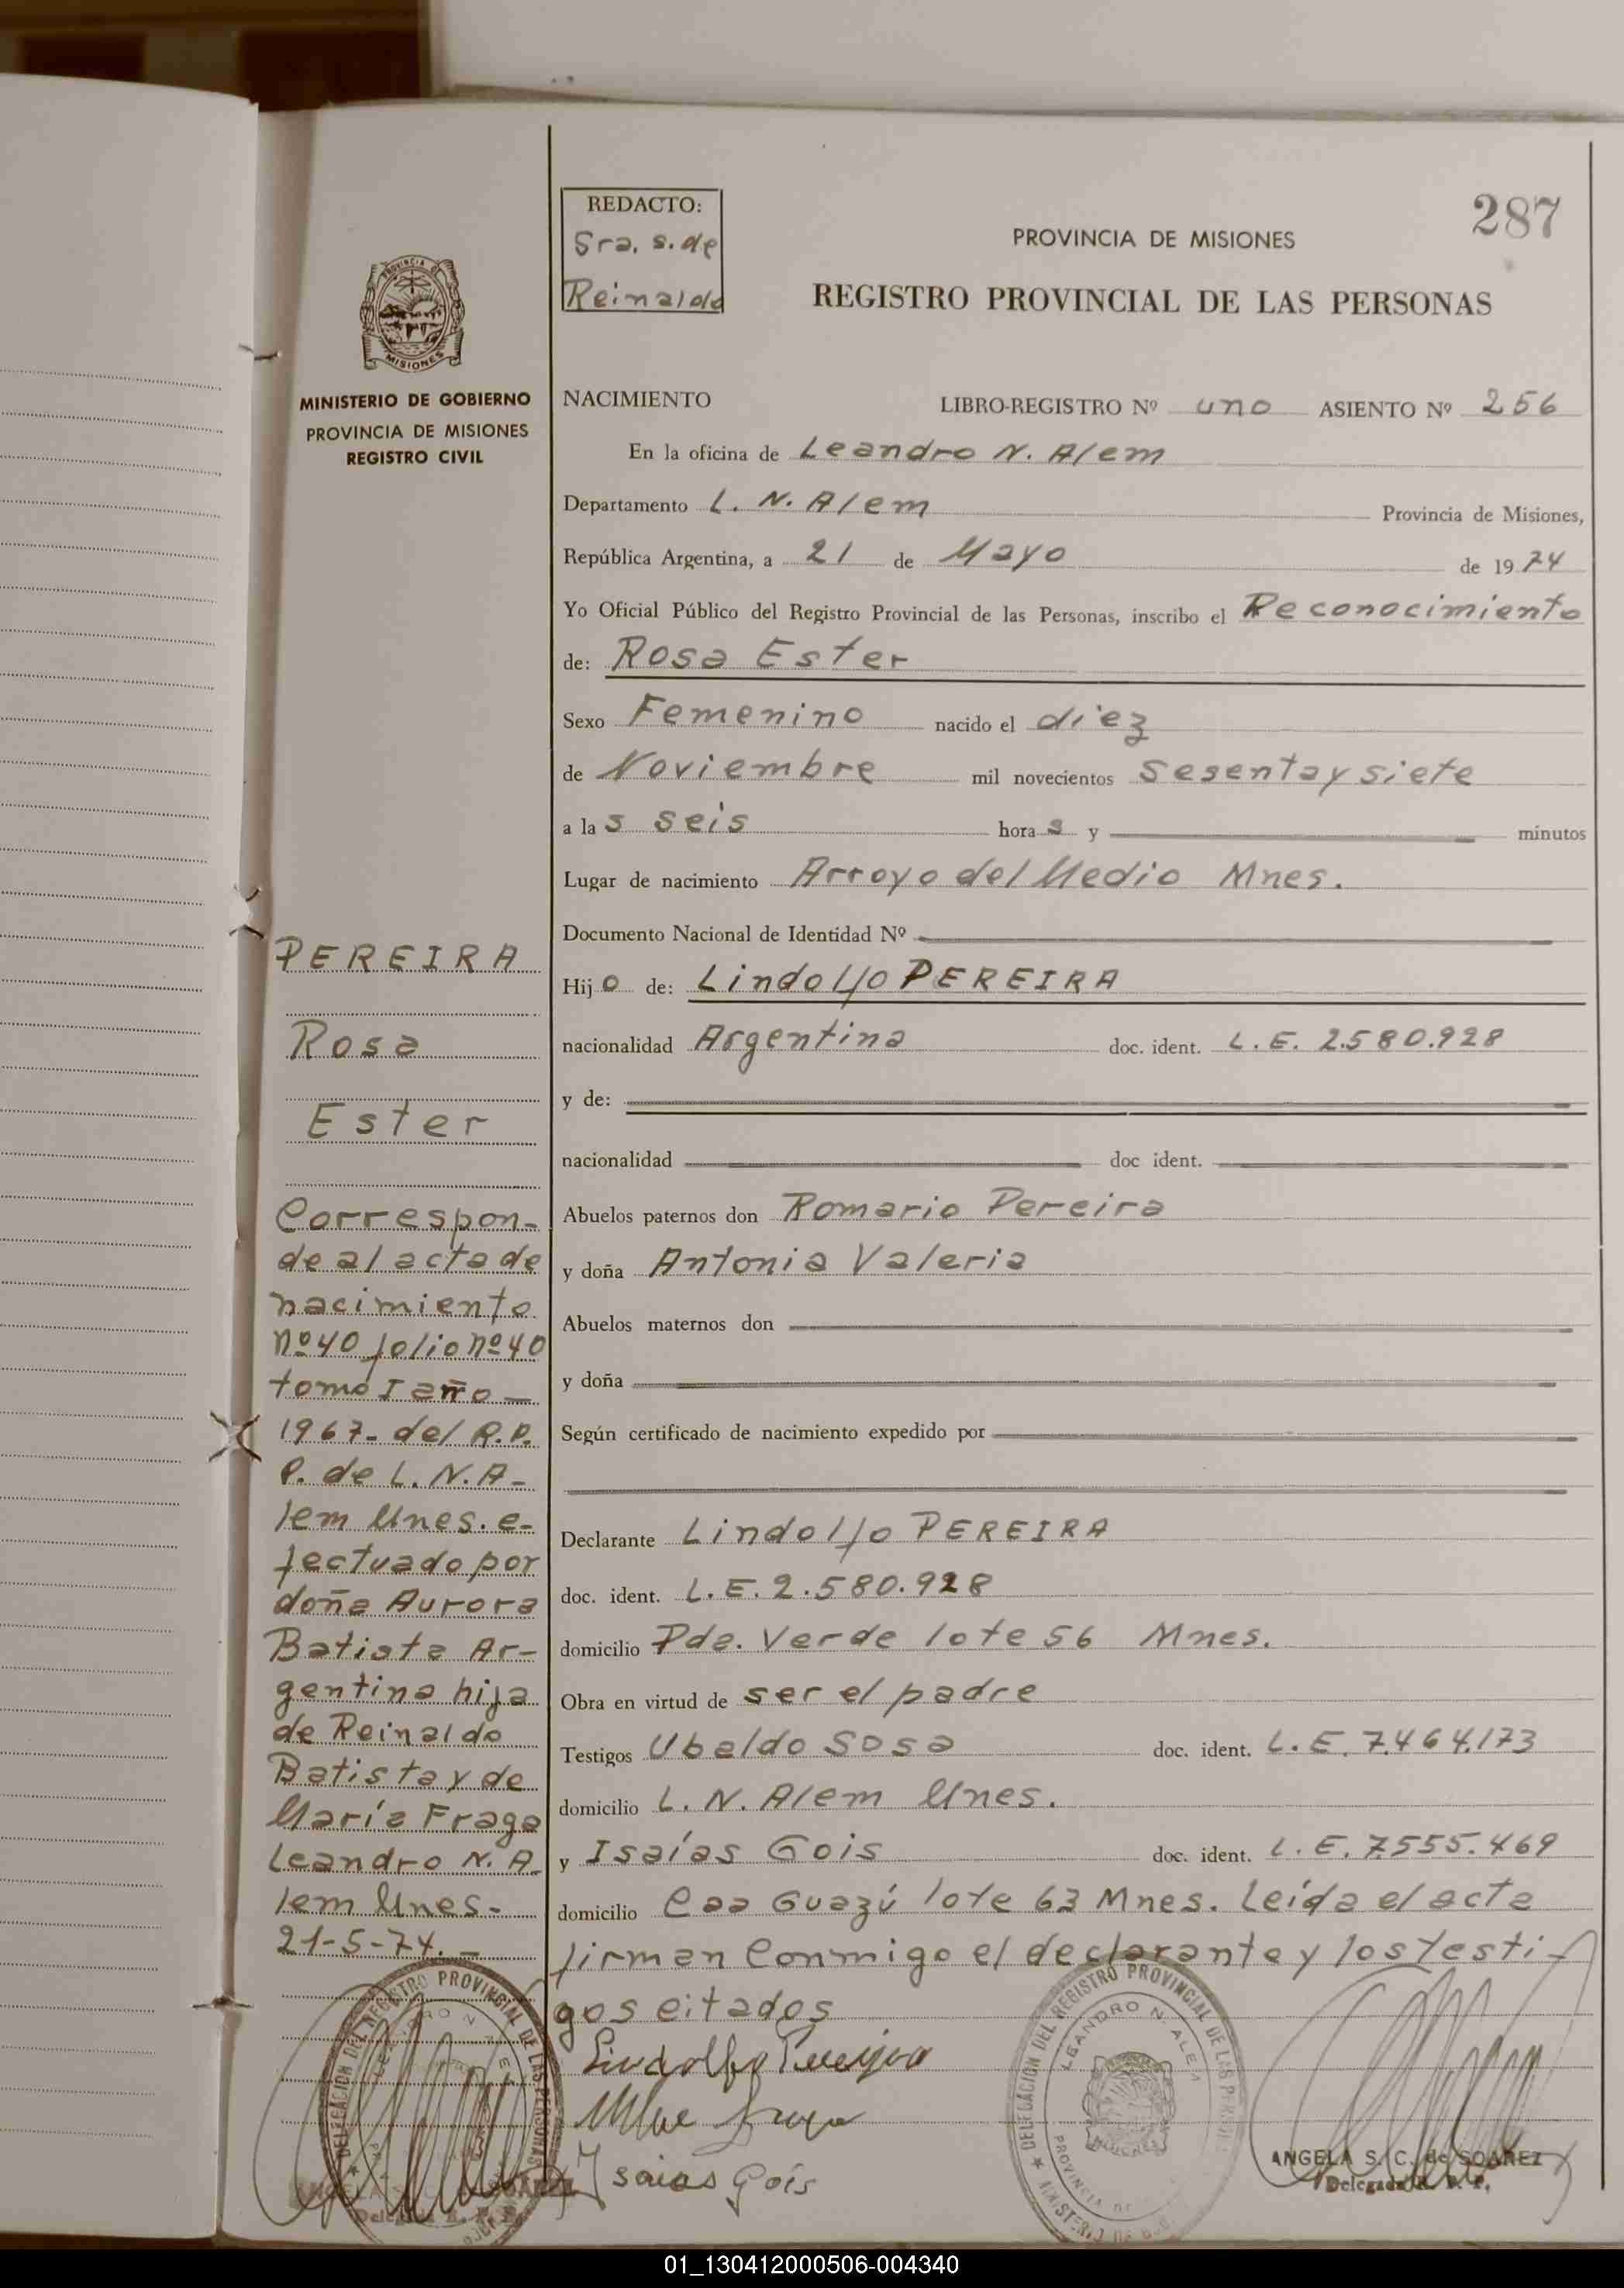 REDACTO:
Sra. S. de
Reinaldo
287
PROVINCIA DE MISIONES
REGISTRO PROVINCIAL DE LAS PERSONAS
MINISTERIO DE GOBIERNO
PROVINCIA DE MISIONES
REGISTRO CIVIL
NACIMIENTO LIBRO-REGISTRO Nº uno ASIENTO Nº 256
En la oficina de Leandro N. Alem
Departamento L. N. Alem Provincia de Misiones,
República Argentina, a 21 de Mayo de 1974
Yo Oficial Público del Registro Provincial de las Personas, inscribo el Reconocimiento
de: Rosa Ester
Sexo Femenino nacido el diez
de Noviembre mil novecientos sesenta y siete
a las seis horas y minutos
Lugar de nacimiento Arroyo del Medio Mnes.
Documento Nacional de Identidad Nº
Hijo de: Lindolfo PEREIRA
nacionalidad Argentina doc. ident. L. E. 2.580.928
y de:
nacionalidad doc ident.
Abuelos paternos don Romario Pereira
y doña Antonia Valeria
Abuelos maternos don
y doña
Según certificado de nacimiento expedido por
Declarante Lindolfo PEREIRA
doc. ident. L. E. 2.580.928
domicilio Pda. Verde lote 56 Mnes.
Obra en virtud de ser el padre
Testigos Ubaldo Sosa doc. ident. L. E. 7.464.173
domicilio L. N. Alem Mnes.
y Isaías Gois doc. ident. L. E. 7.555.469
domicilio Caa Guazú lote 63 Mnes. Leída el acta
firman conmigo el declarante y los testi-
gos citados
Lindolfo Pereira
Isaias Góis
PEREIRA
Rosa
Ester
Correspon-
de al acta de
nacimiento
nº 40 folio nº 40
tomo I año -
1967- del R.P.
P. de L. N. A-
lem Mnes. e-
fectuado por
doña Aurora
Batista Ar-
gentina hija
de Reinaldo
Batista y de
María Fraga
Leandro N. A
lem Mnes-
21-5-74.-
DELEGACION DEL REGISTRO PROVINCIAL DE LAS PERSONAS
DELEGACION DEL REGISTRO PROVINCIAL DE LAS PERSONAS
LEANDRO N. ALEM
ANGELA S. C. de SOAREZ
Delegada R. P. P.
01_130412000506-004340